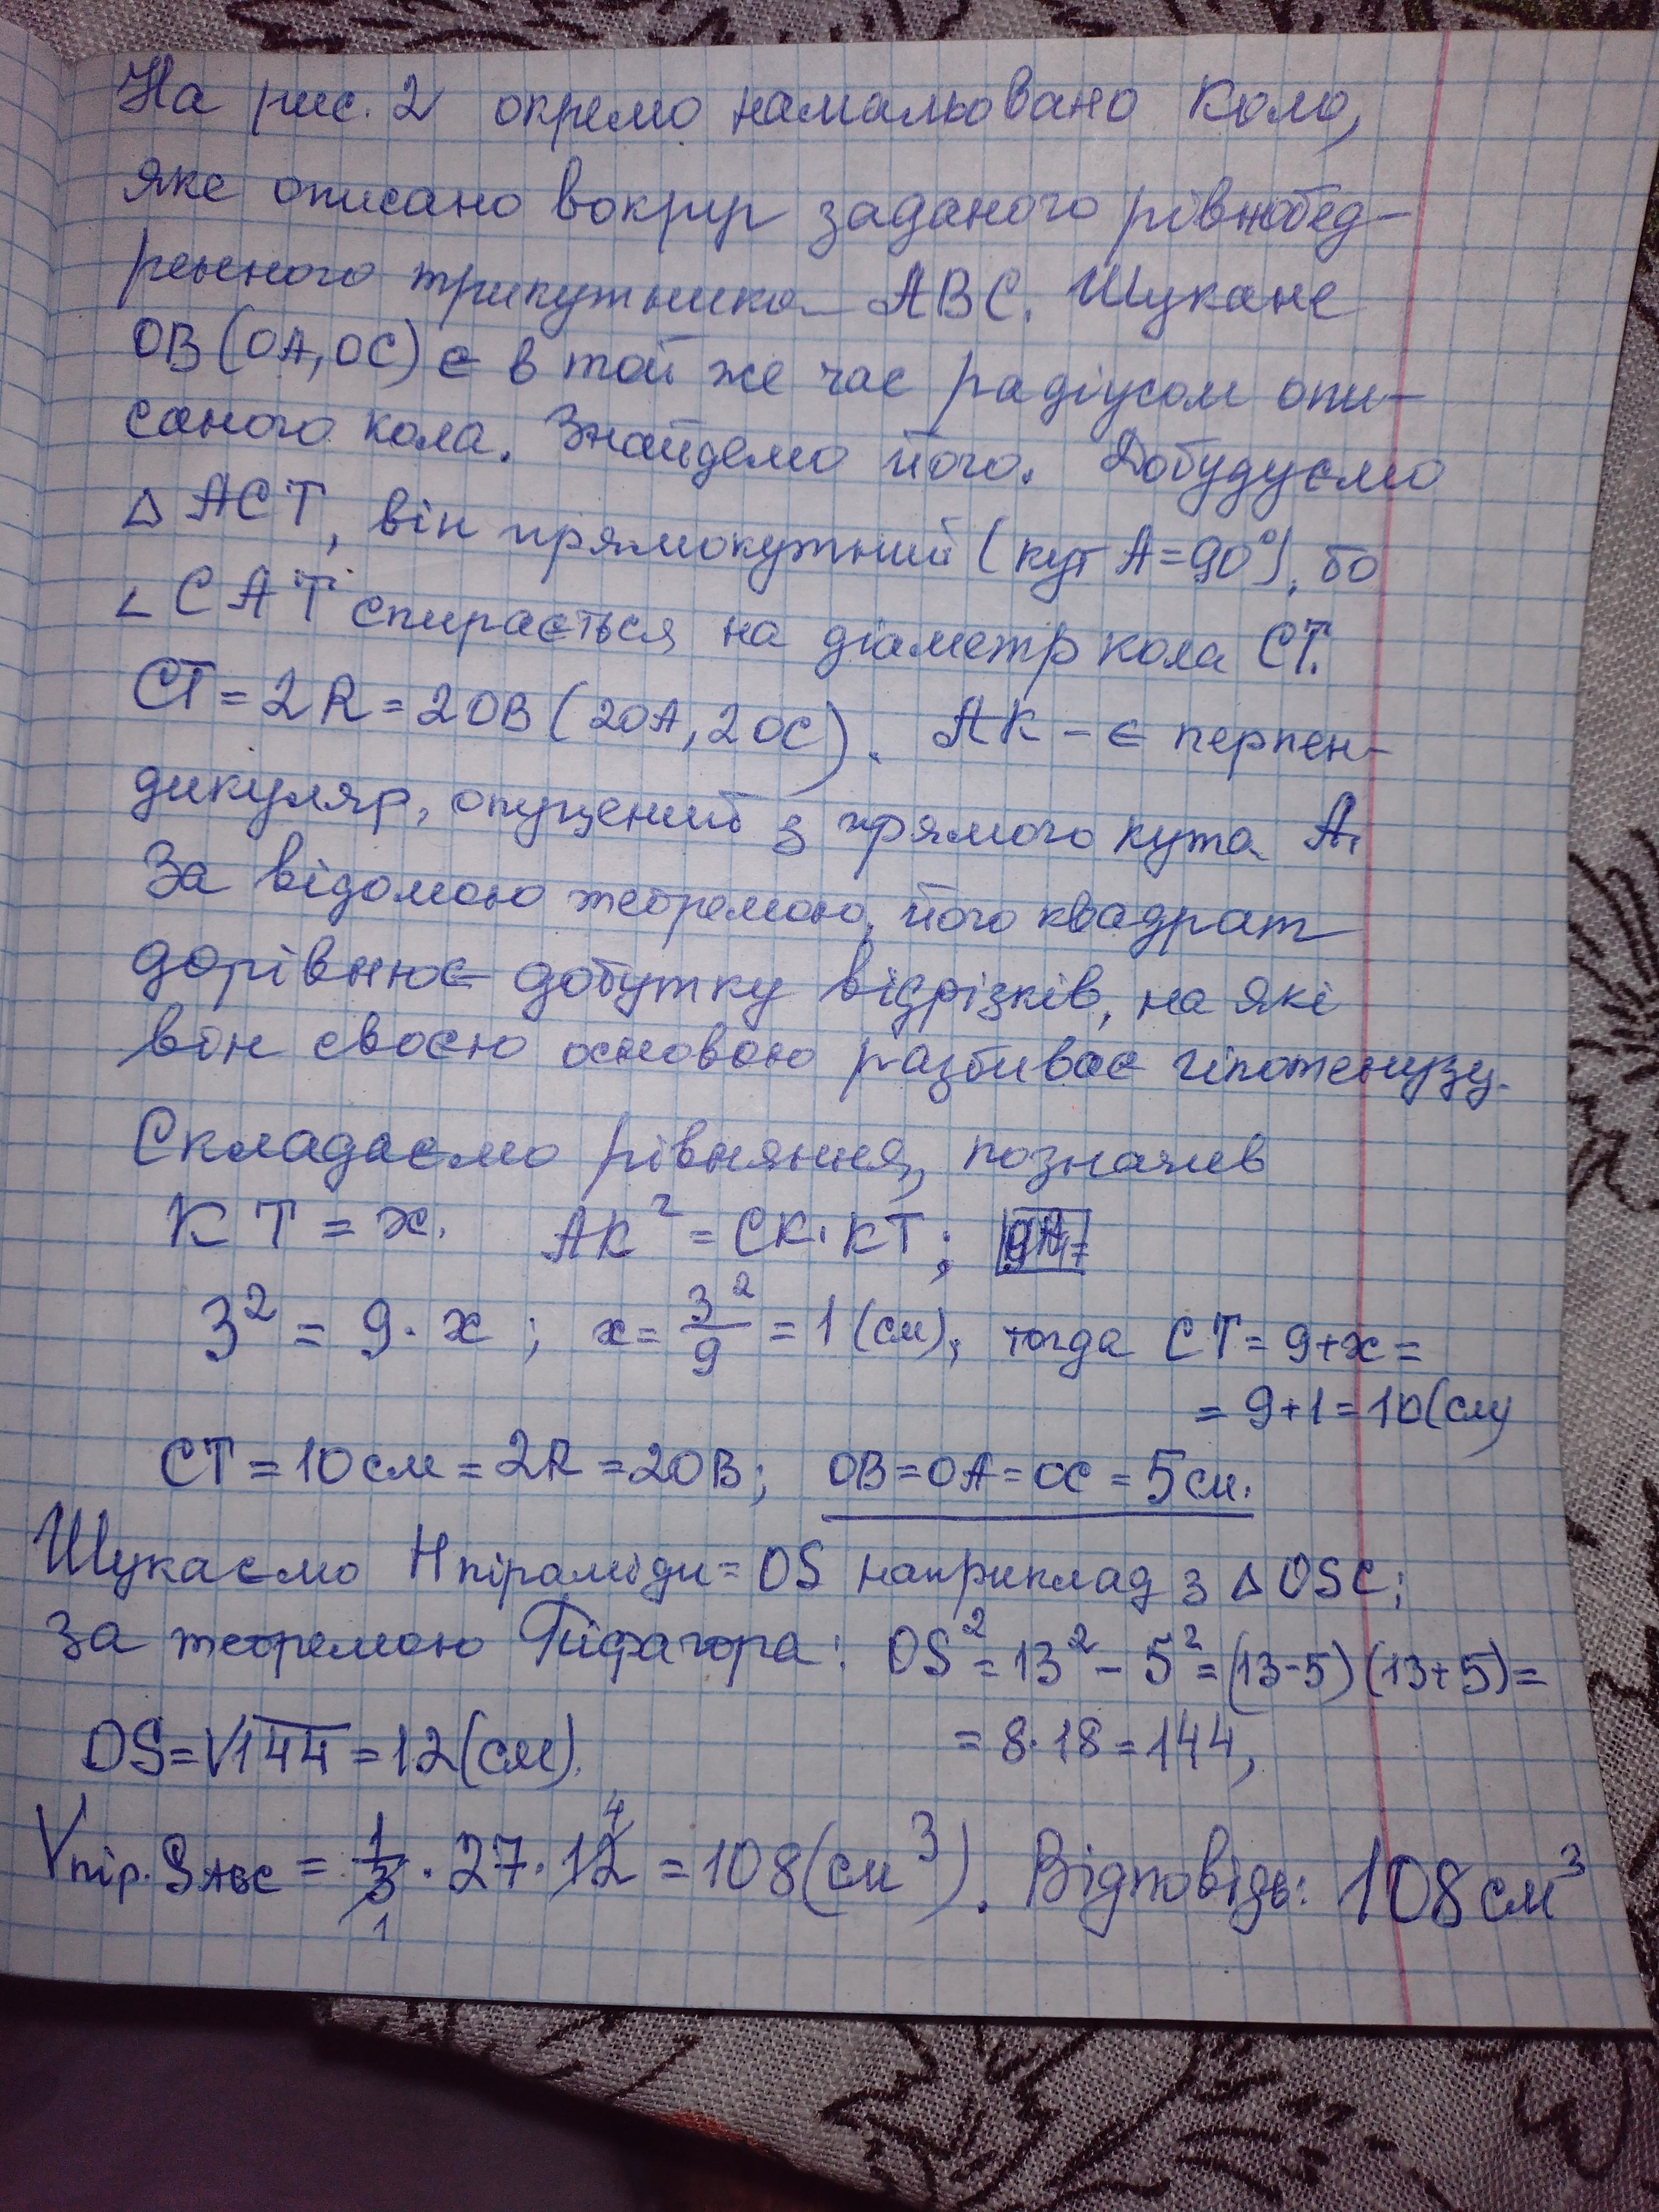 На рис. 2 окремо намальовано коло,
яке описано вокруг заданого рівнобед-
ренного трикутника ABC. Шукане
OB (OA, OC) є в той же час радіусом опи-
саного кола. Знайдемо його. Добудуємо
Δ ACT, він прямокутний (кут A=90°), бо
∠ CAT спирається на діаметр кола CT.
CT = 2R = 2OB (2OA, 2OC). AK - є перпен-
дикуляр, опущений з прямого кута A.
За відомою теоремою, його квадрат
дорівнює добутку відрізків, на які
він своєю основою разбиває гіпотенузу.
Складаємо рівняння, позначив
KT = x. AK² = CK·KT;
3² = 9·x; x = 3²/9 = 1 (см), тогда CT = 9+x =
= 9+1 = 10(см)
CT = 10 см = 2R = 2OB; OB=OA=OC = 5 см.
Шукаємо H піраміди = OS наприклад з Δ OSC;
За теоремою Піфагора: OS² = 13² - 5² = (13-5)(13+5) =
OS = √144 = 12 (см). = 8·18 = 144,
Vпір. SABC = 1/3 · 27 · 12 = 108 (см³). Відповідь: 108 см³
4
1